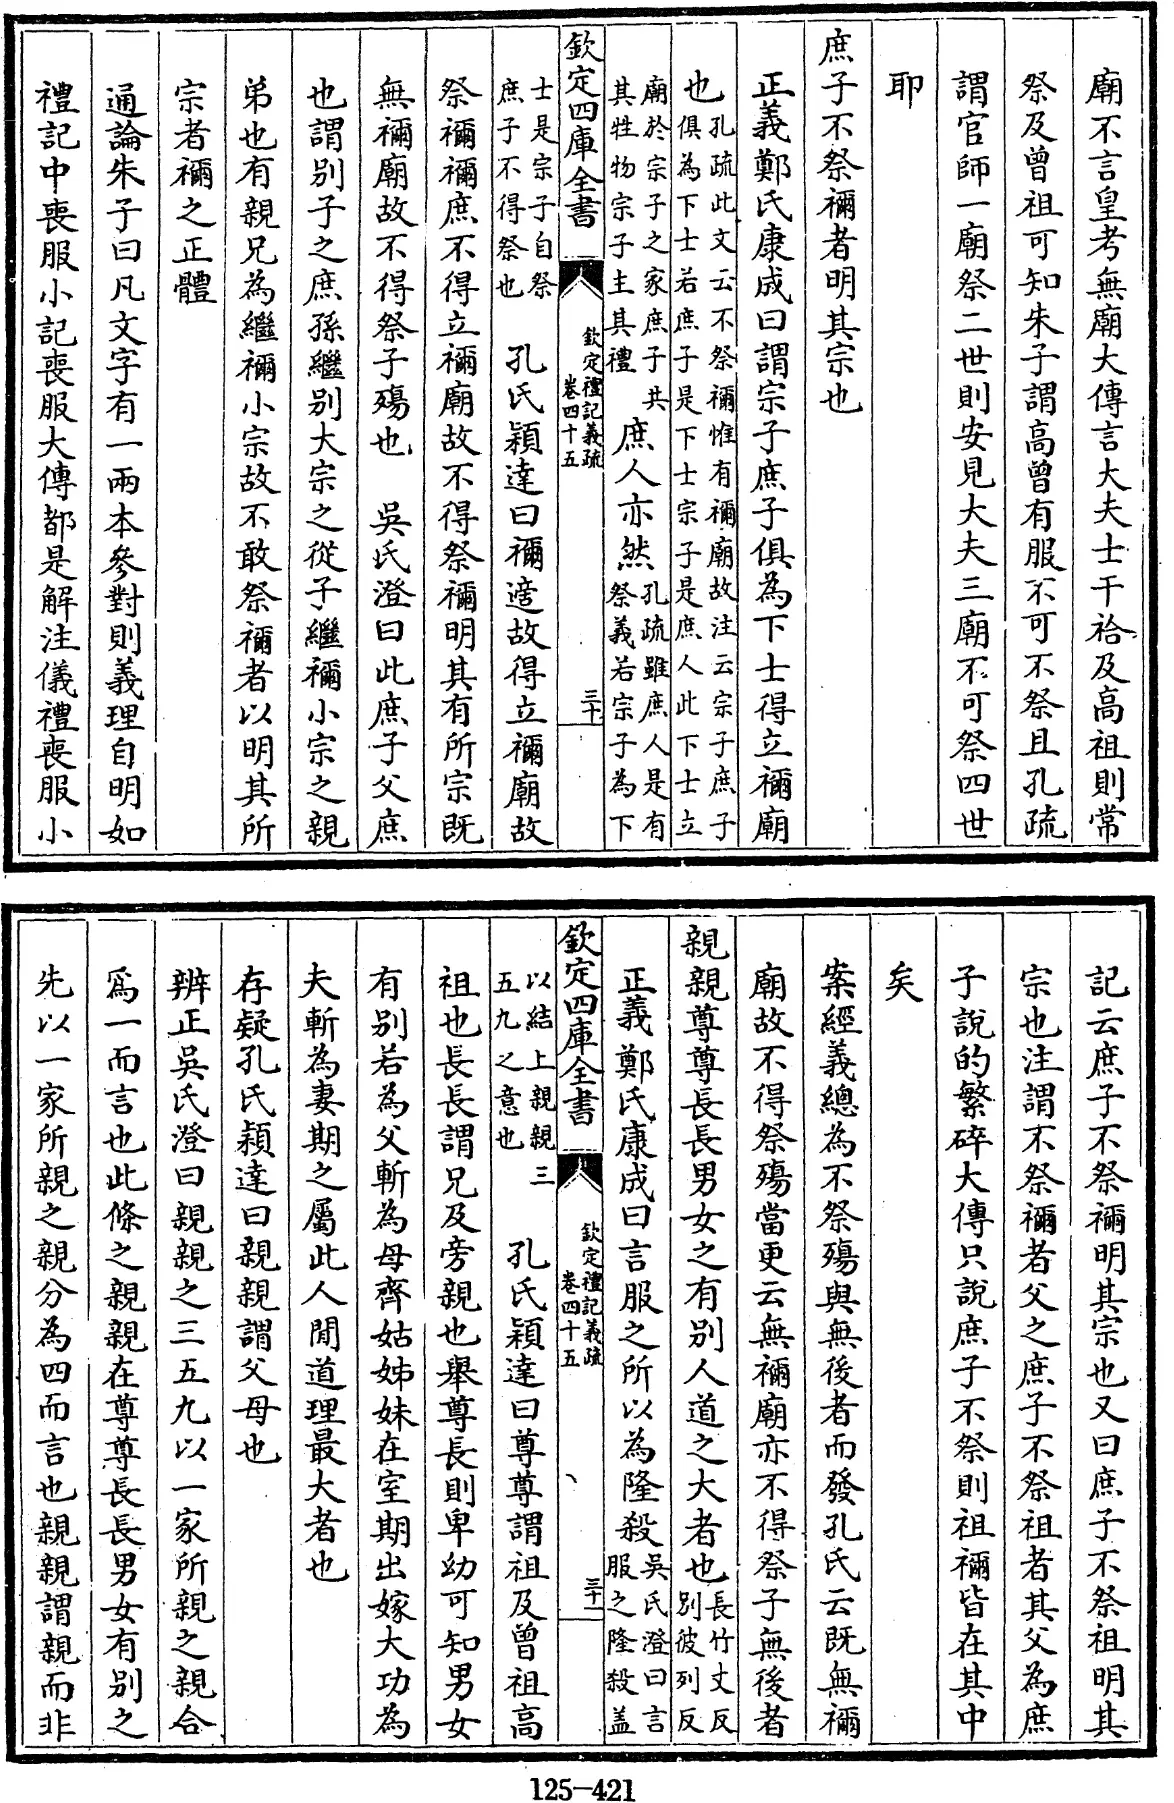 廟不言皇考無廟大傳言大夫士干祫及高祖則常
祭及曾祖可知朱子謂高曾有服不可不祭且孔疏
謂官師一廟祭二世則安見大夫三廟不可祭四世
耶
庶子不祭禰者明其宗也
正義鄭氏康成曰謂宗子庶子俱為下士得立禰廟
也孔疏此文云不祭禰惟有禰廟故注云宗子庶子
俱為下士若庶子是下士宗子是庶人此下士立
廟於宗子之家庶子共
其牲物宗子主其禮
庶人亦然孔疏雖庶人是有
祭義若宗子為下
欽定四庫全書
欽定禮記義疏
卷四十五
三十
士是宗子自祭
庶子不得祭也
孔氏穎達曰禰適故得立禰廟故
祭禰禰庶不得立禰廟故不得祭禰明其有所宗既
無禰廟故不得祭子殤也 吳氏澄曰此庶子父庶
也謂別子之庶孫繼別大宗之從子繼禰小宗之親
弟也有親兄為繼禰小宗故不敢祭禰者以明其所
宗者禰之正體
通論朱子曰凡文字有一兩本參對則義理自明如
禮記中喪服小記喪服大傳都是解注儀禮喪服小
記云庶子不祭禰明其宗也又曰庶子不祭祖明其
宗也注謂不祭禰者父之庶子不祭祖者其父為庶
子說的繁碎大傳只說庶子不祭則祖禰皆在其中
矣
案經義總為不祭殤與無後者而發孔氏云既無禰
廟故不得祭殤當更云無禰廟亦不得祭子無後者
親親尊尊長長男女之有別人道之大者也長竹丈反
別彼列反
正義鄭氏康成曰言服之所以為隆殺吳氏澄曰言
服之隆殺盖
欽定四庫全書
欽定禮記義疏
卷四十五
三十一
以結上親親三
五九之意也
孔氏穎達曰尊尊謂祖及曾祖高
祖也長長謂兄及旁親也舉尊長則卑幼可知男女
有別若為父斬為母齊姑姊妹在室期出嫁大功為
夫斬為妻期之屬此人閒道理最大者也
存疑孔氏穎達曰親親謂父母也
辨正吳氏澄曰親親之三五九以一家所親之親合
為一而言也此條之親親在尊尊長長男女有別之
先以一家所親之親分為四而言也親親謂親而非
125-421